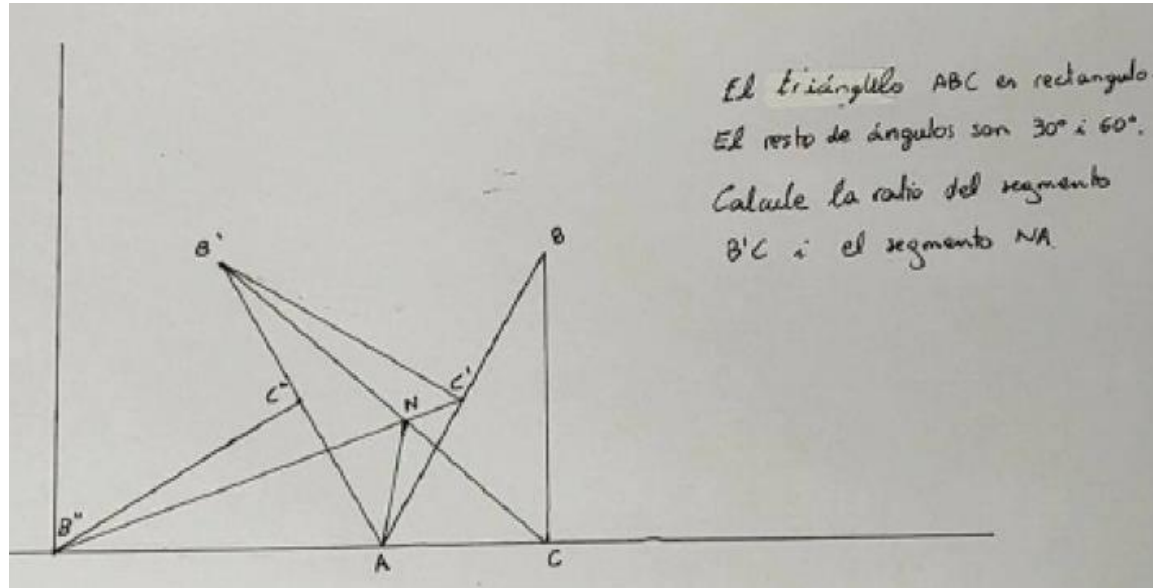 El triángulo ABC es rectangulo
El resto de ángulos son 30° i 60°.
Calcule la ratio del segmento
B'C i el segmento NA.
B'
B
C"
N
C'
B"
A
C